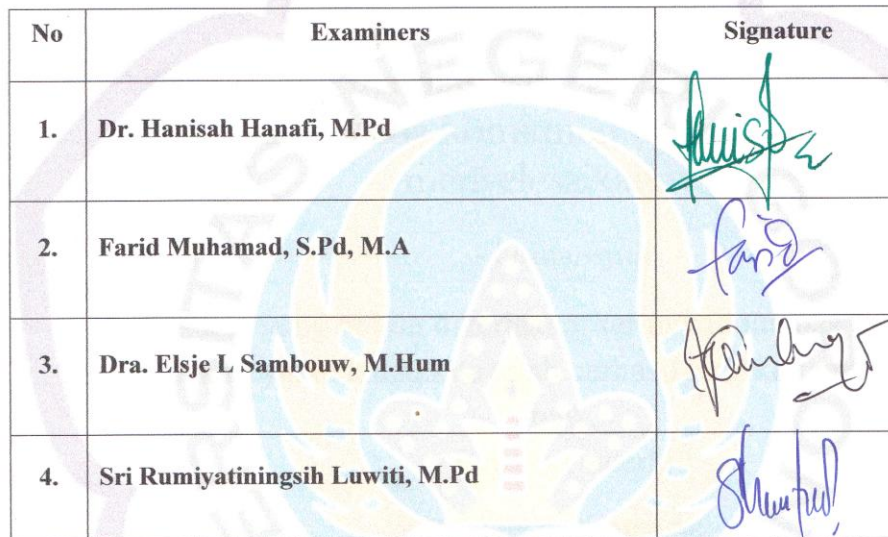 No Examiners Signature
1. Dr. Hanisah Hanafi, M.Pd
2. Farid Muhamad, S.Pd, M.A
Farid
3. Dra. Elsje L Sambouw, M.Hum
4. Sri Rumiyatiningsih Luwiti, M.Pd